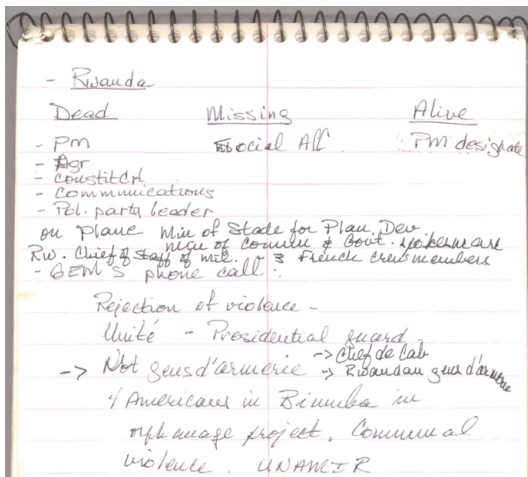 - Rwanda
Dead Missing Alive
- PM Social Aff. PM designate
- Agr
- Constit Crt
- Communications
- Pol. party leader
on plane Min of State for Plan. Dev
Min of Commun & Govt. spokesman
Rw. Chief of Staff of mil. 3 French crewmembers
- GEM'S phone call:
Rejection of violence -
Unité - Presidential guard
-> Chef de Cab
-> Not gens d'armerie -> Rwandan gens d'armerie
4 Americans in in
orphanage project. Communal
violence. UNAMIR